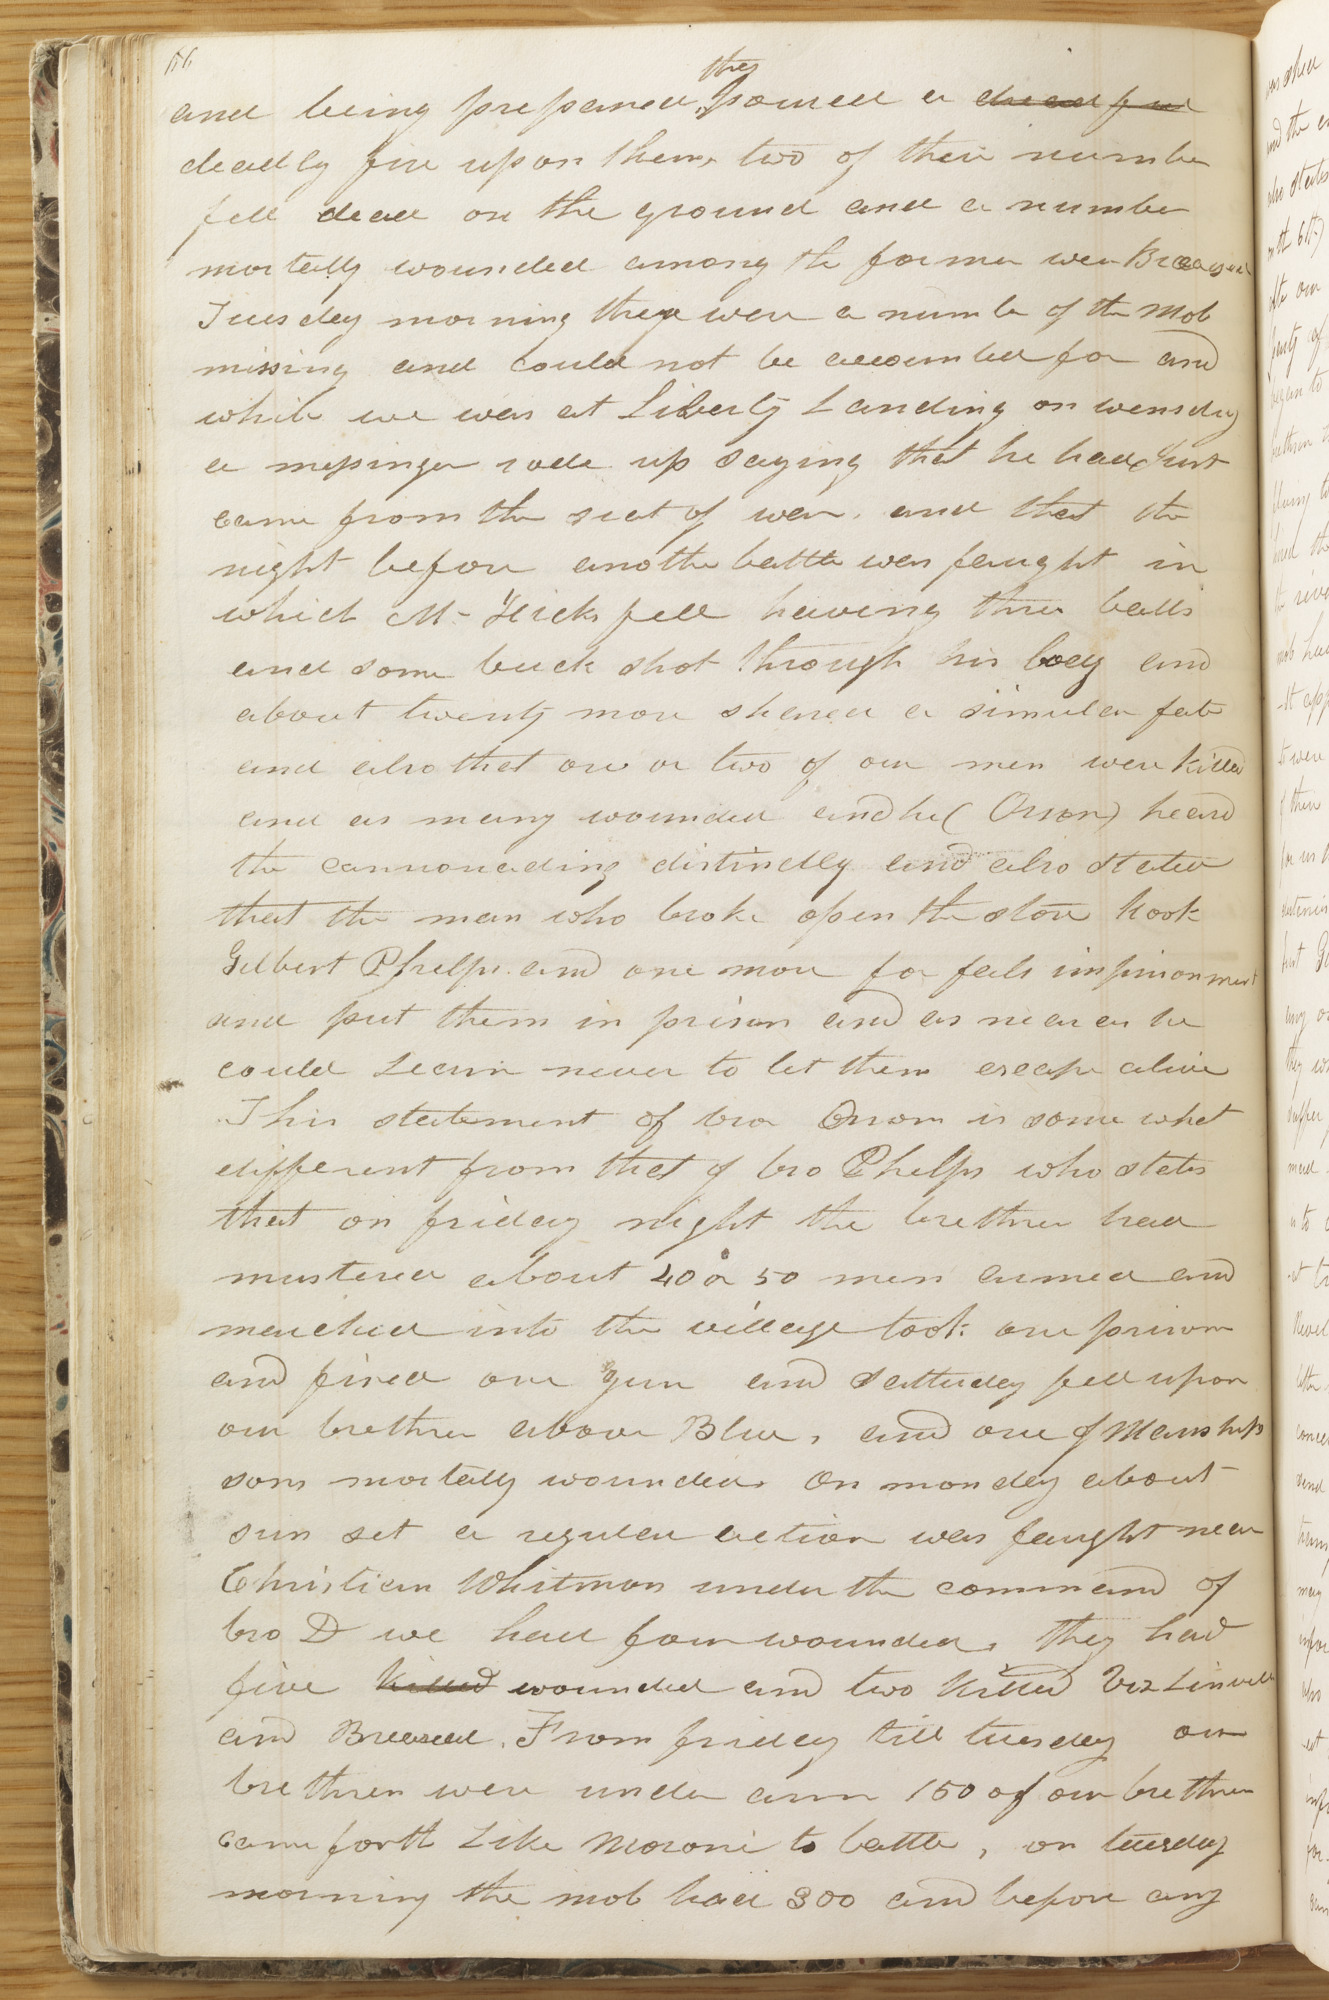 56
and being prepared, they poured a dreadful
deadly fire upon them, two of their number
fell dead on the ground and a number
mortally wounded among the former were Breaseal
Tuesday morning they were a number of the mob
missing and could not be accounted for and
while we was at Liberty Landing on wensday
a messinger rode up saying that he had Just
came from the seat of war. and that the
night before another battle was faught in
which Mr Hicks fell having three balls
and some buck shot through his body and
about twenty more shared a similar fate
and also that one or two of our men were killed
and as many wounded and he (Orson) heard
the cannonading distinctly and also stated
that the man who broke open the store took
Gilbert Phelps and one more for fals imprisonment
and put them in prison and as near as he
could Learn never to let them escape alive
This statement of bro Orson is some what
different from that of bro Phelps who states
that on friday night the brethren had
mustered about 40 or 50 men armed and
marched into the village took one prisoner
and fired one gun and Satturday fell upon
our brethren above Blue, and one of Manships
sons mortally wounded. On monday about
sun set a regular action was faught near
Christian Whitmon under the command of
bro D we had four wounded, they had
five killed wounded and two killed Viz Linvill
and Breaseal. From friday till tuesday our
brethren were under arms 150 of our brethren
came forth Like Moroni to battle, on tuesday
morning the mob had 300 and before any